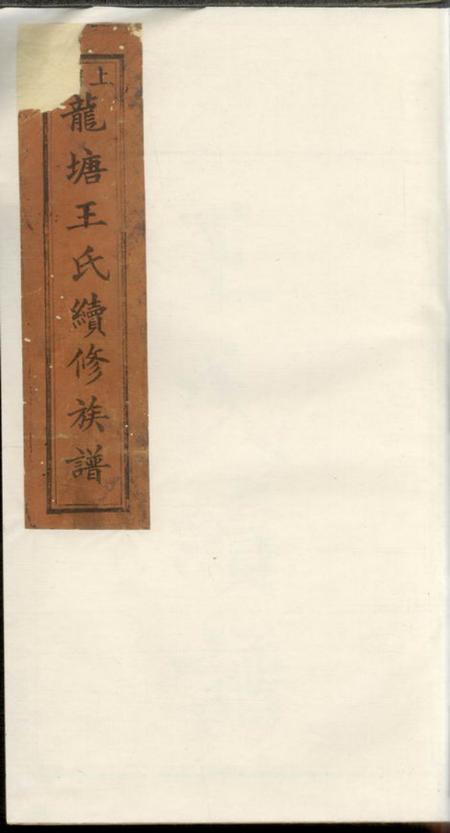 上
龍塘王氏續修族譜